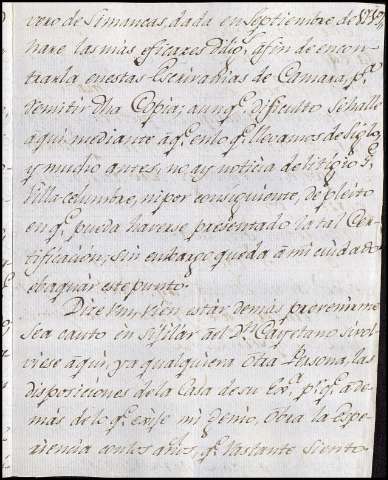 vero de Simancas, dada en Septiembre de 1715,
hare las más eficazes dilig.s afin de encon-
trarla en estas Escrivanias de Camara, p.a
remitir dha Copia; aunq.e dificulto se halle
aqui, mediante a q.e en lo q.e llevamos de Siglo
y mucho antes, no ay noticia de litigio
Villa celumbre, ni por consiguiente, de pleito
en q.e pueda haverse presentado la tal Cer-
tificacion; sin embargo queda a mi cuidado
ebaquar este punto.
Dize Vm. vien estar demás prevenirme
sea cauto en sijilar ael D.n Cayetano si vol-
viese aqui, ya qualquiera otra Persona, las
disposiciones de la Casa de su Ex.a p.s q.e ade-
más de lo q.e exije mi Genio, obra la Espe-
riencia con los años, q.e vastante siento